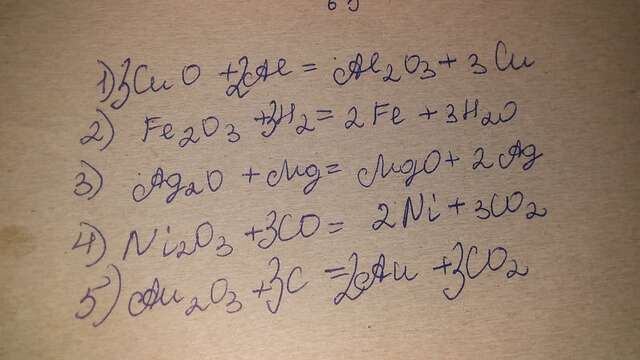 1) 3CuO + 2Al = Al2O3 + 3Cu
2) Fe2O3 + 3H2 = 2Fe + 3H2O
3) Ag2O + Mg = MgO + 2Ag
4) Ni2O3 + 3CO = 2Ni + 3CO2
5) Au2O3 + 3C = 2Au + 3CO2